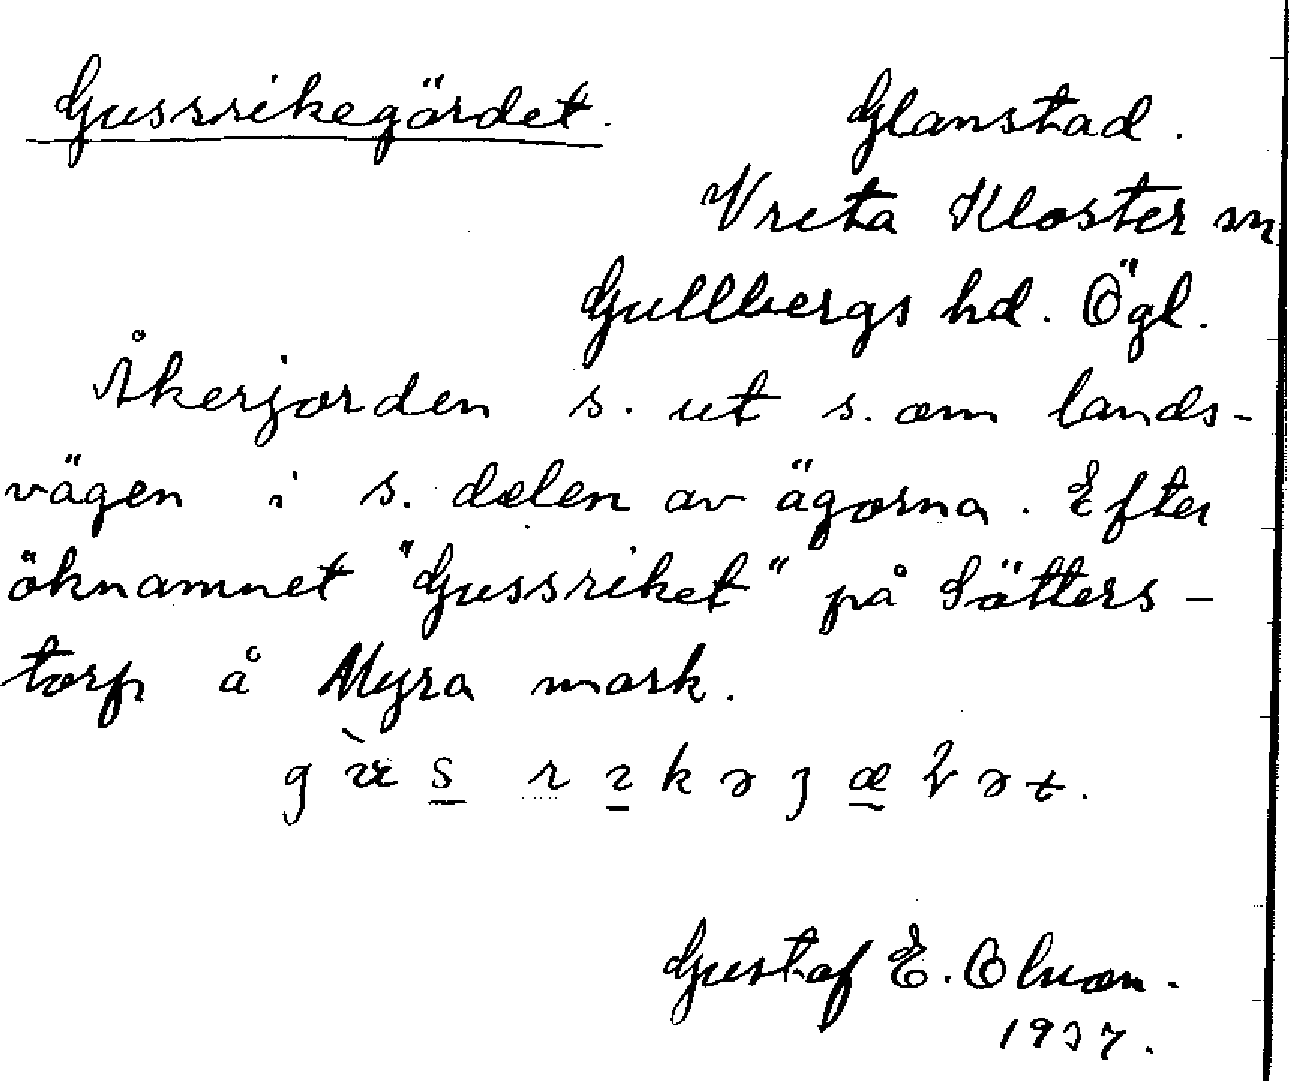 Gussrikegärdet. Glanstad.
Vreta Kloster sn
Gullbergs hd. Ögl.
Åkerjorden s. ut s. om lands-
vägen i s. delen av ägorna. Efter
öknamnet "Gussriket" på Sätters-
torp å Myra mark.
Gustaf E. Olson.
1937.